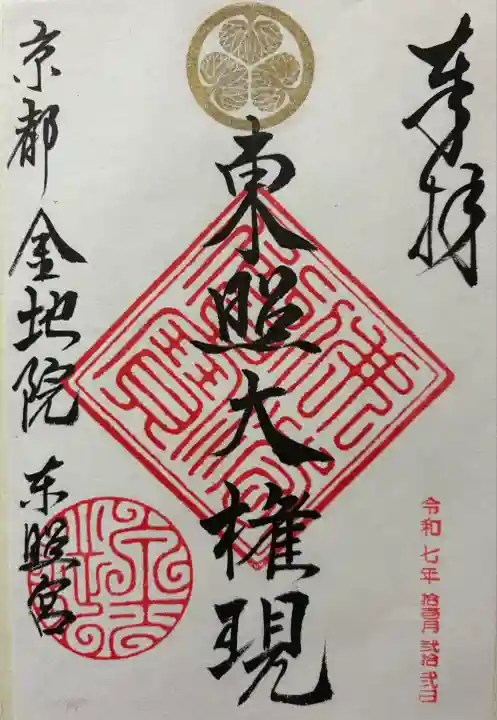 奉拝
令和七年 拾壱月 弐拾弐日
東照大権現
京都 金地院 東照宮